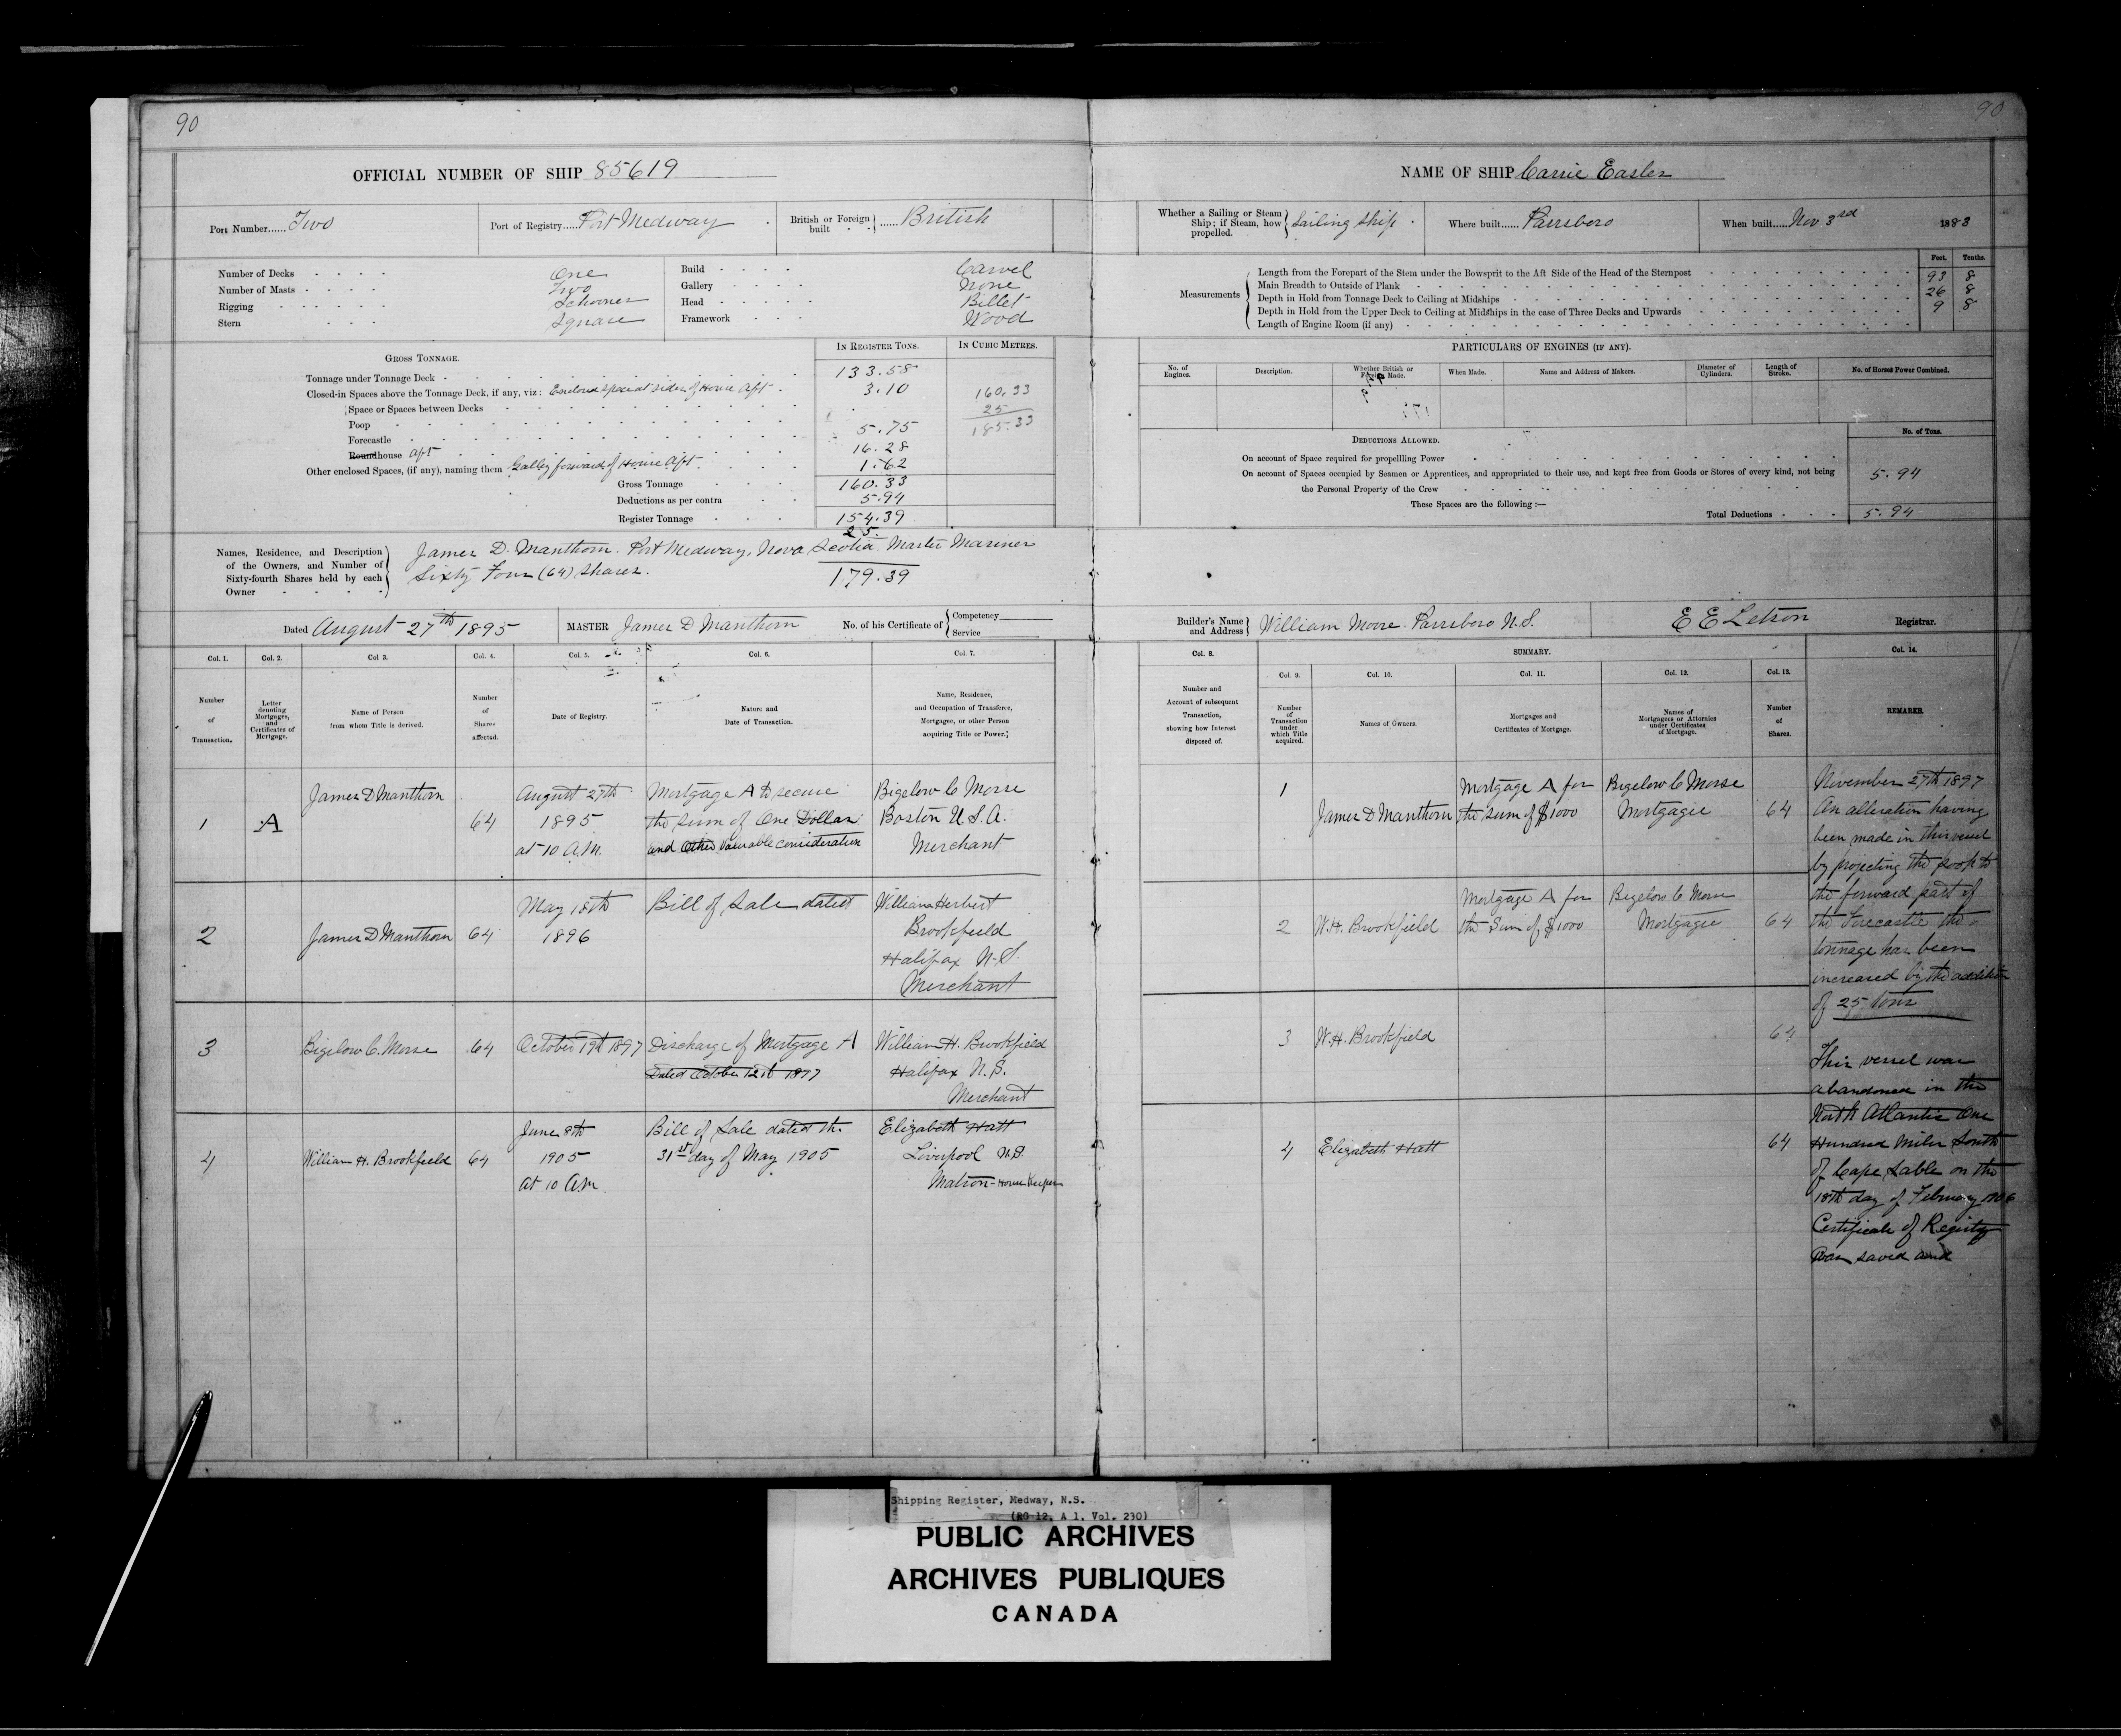 90
OFFICIAL NUMBER OF SHIP 85619
Port Number...... Two
Port of Registry..... Port Medway
British or Foreign built ...... British
Number of Decks One
Number of Masts Two
Rigging Schooner
Stern Square
Build Carvel
Gallery None
Head Billet
Framework Wood
GROSS TONNAGE.
IN REGISTER TONS.
IN CUBIC METRES.
Tonnage under Tonnage Deck 133.58
Closed-in Spaces above the Tonnage Deck, if any, viz: Enclosed space at sides of House Aft 3.10 160.33
Space or Spaces between Decks 25
Poop 5.75 185.33
Forecastle 16.28
Roundhouse Aft 1.62
Other enclosed Spaces, (if any), naming them Galley forward of House Aft
Gross Tonnage 160.33
Deductions as per contra 5.94
Register Tonnage 154.39
25.
179.39
Names, Residence, and Description of the Owners, and Number of Sixty-fourth Shares held by each Owner
James D. Manthorn. Port Medway, Nova Scotia. Master Mariner
Sixty Four (64) Shares.
Dated August 27th 1895
MASTER James D Manthorn
No. of his Certificate of
Competency
Service
Col. 1. Col. 2. Col 3. Col. 4. Col. 5. Col. 6. Col. 7.
Number of Transaction.
Letter denoting Mortgages, and Certificates of Mortgage.
Name of Person from whom Title is derived.
Number of Shares affected.
Date of Registry.
Nature and Date of Transaction.
Name, Residence, and Occupation of Transferee, Mortgagee, or other Person acquiring Title or Power.
1 A James D Manthorn 64
August 27th 1895 at 10 A.M.
Mortgage A to secure
the sum of One Dollar
and Other Valuable consideration
Bigelow C Morse
Boston U.S.A.
Merchant
2 James D Manthorn 64
May 18th
1896
Bill of Sale dated
William Herbert
Brookfield
Halifax N.S.
Merchant
3 Bigelow C. Morse 64
October 19th 1897
Discharge of Mortgage A
Dated October 12th 1897
William H. Brookfield
Halifax N.S.
Merchant
4 William H. Brookfield 64
June 8th
1905
at 10 A.M.
Bill of Sale dated the
31st day of May 1905
Elizabeth Hatt
Liverpool N.S.
Matron-House Keeper
90
NAME OF SHIP Carrie Easler
Whether a Sailing or Steam Ship; if Steam, how propelled. Sailing Ship
Where built...... Parrsboro
When built..... Nov 3rd 1883
Measurements
Feet. Tenths.
Length from the Forepart of the Stem under the Bowsprit to the Aft Side of the Head of the Sternpost 93 8
Main Breadth to Outside of Plank 26 8
Depth in Hold from Tonnage Deck to Ceiling at Midships 9 8
Depth in Hold from the Upper Deck to Ceiling at Midships in the case of Three Decks and Upwards
Length of Engine Room (if any)
PARTICULARS OF ENGINES (IF ANY).
No. of Engines.
Description.
Whether British or Foreign Made.
When Made.
Name and Address of Makers.
Diameter of Cylinders.
Length of Stroke.
No. of Horses Power Combined.
DEDUCTIONS ALLOWED.
No. of Tons.
On account of Space required for propelling Power
On account of Spaces occupied by Seamen or Apprentices, and appropriated to their use, and kept free from Goods or Stores of every kind, not being
the Personal Property of the Crew 5.94
These Spaces are the following :—
Total Deductions 5.94
Builder's Name and Address William Moore. Parrsboro N.S.
E E Letson Registrar.
Col. 8.
SUMMARY.
Col. 14.
Col. 9. Col. 10. Col. 11. Col. 12. Col. 13.
Number and Account of subsequent Transaction, showing how Interest disposed of.
Number of Transaction under which Title acquired.
Names of Owners.
Mortgages and Certificates of Mortgage.
Names of Mortgagees or Attornies under Certificates of Mortgage.
Number of Shares.
REMARKS.
1 James D Manthorn
Mortgage A for
the sum of $1000
Bigelow C Morse
Mortgagee
64
2 W.H. Brookfield
Mortgage A for
the Sum of $1000
Bigelow C Morse
Mortgagee
64
3 W.H. Brookfield 64
4 Elizabeth Hatt 64
November 27th 1897
An alteration having
been made in this vessel
by projecting the poop to
the forward part of
the Forecastle the
tonnage has been
increased by the addition
of 25 tons
This vessel was
abandoned in the
North Atlantic One
Hundred Miles South
of Cape Sable on the
18th day of February 1906
Certificate of Registry
was saved and
Shipping Register, Medway, N.S.
(RG 12, A 1, Vol. 230)
PUBLIC ARCHIVES
ARCHIVES PUBLIQUES
CANADA